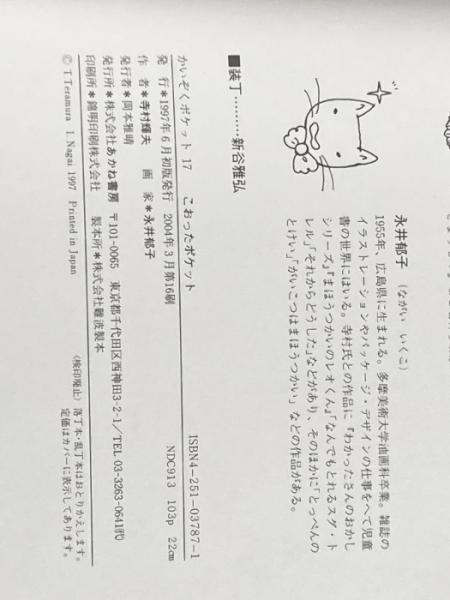 永井郁子 （ながい いくこ）
1955年、広島県に生まれる。多摩美術大学油画科卒業。雑誌の
イラストレーションやパッケージ・デザインの仕事をへて児童
書の世界にはいる。寺村氏との作品に『わかったさんのおかし
シリーズ』『まほうつかいのレオくん』『なんでもとれるスグ・ト
レル』『それからどうした』などがあり、そのほかに『とっぺんの
とけい』『がいこつはまほうつかい』などの作品がある。
■装丁………新谷雅弘
かいぞくポケット 17 こおったポケット ISBN4-251-03787-1
発 行＊1997年6月初版発行 2004年3月第16刷 NDC913 103p 22㎝
作 者＊寺村輝夫 画 家＊永井郁子
発行者＊岡本雅晴
発行所＊株式会社あかね書房 〒101-0065 東京都千代田区西神田3-2-1／TEL 03-3263-0641㈹
印刷所＊錦明印刷株式会社 製本所＊株式会社難波製本
© T.Teramura I. Nagai 1997 Printed in Japan
〈検印廃止〉 落丁本・乱丁本はおとりかえします。
定価はカバーに表示してあります。